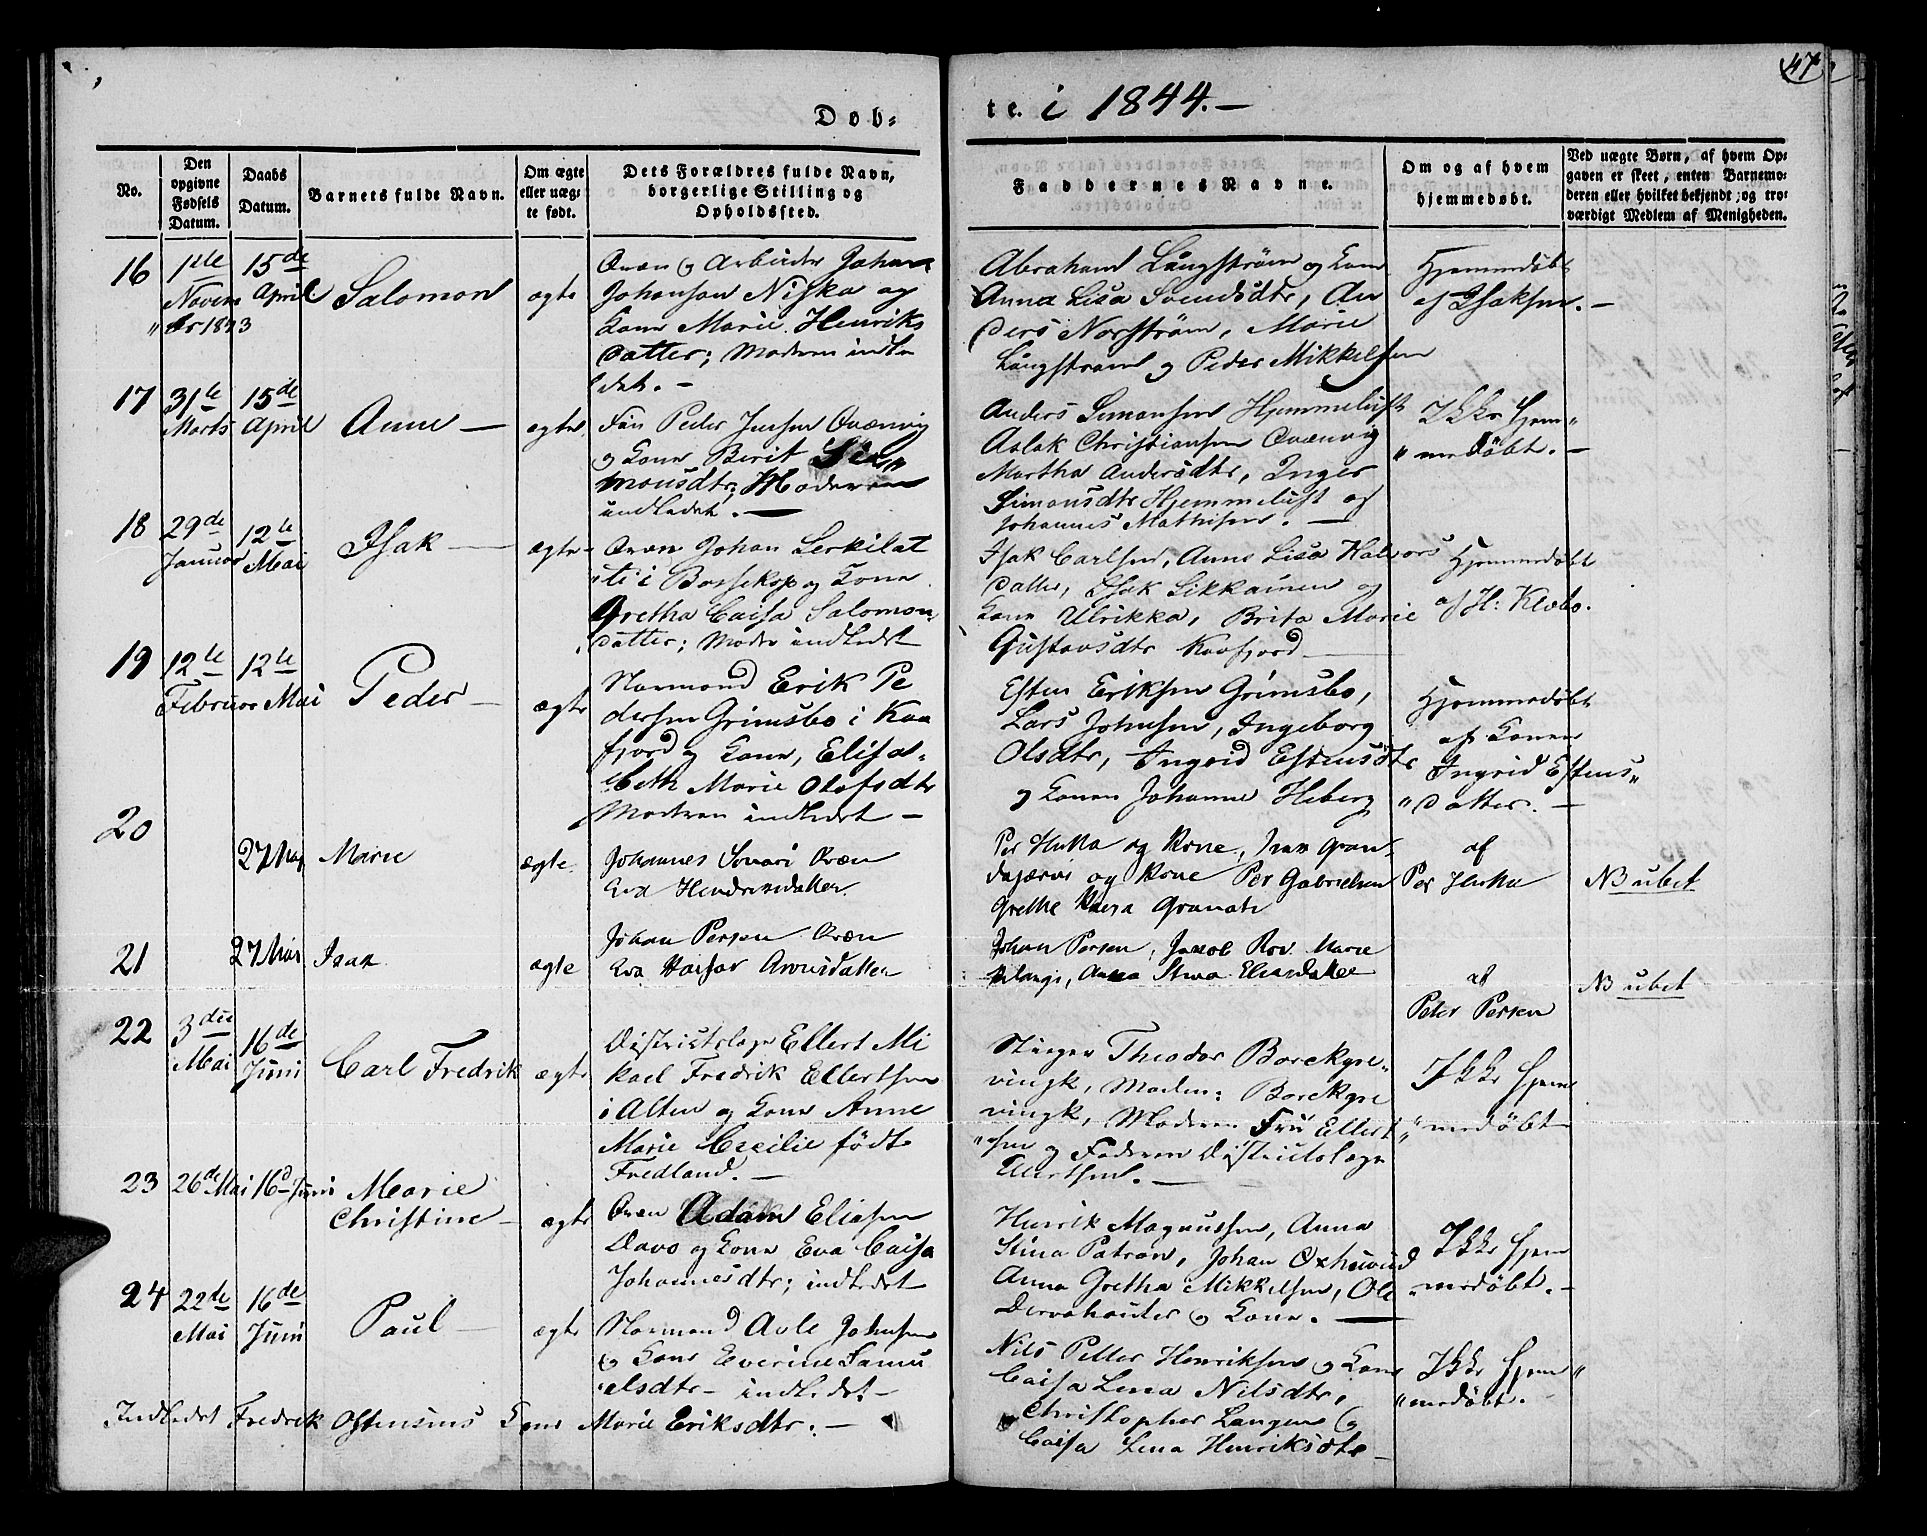 47
Døb-
te. i 1844.-
No.
Den opgivne Fødsels Datum.
Daabs Datum.
Barnets fulde Navn.
Om ægte eller uægte født.
Dets Forældres fulde Navn, borgerlige Stilling og Opholdssted.
Faddernes Navne.
Om og af hvem hjemmedøbt.
Ved uægte Børn, af hvem Opgaven er skeet, enten Barnemoderen eller hvilket bekjendt, og troværdigt Medlem af Menigheden.
16
1ste
Novem
" br 1843
15de
April
Salomon
ægte
Qvæn og Arbeider Johan
Johansen Niska og
Kone Marie Henriks
datter; Moderen indle
det.-
Abraham Längström og Kone
Anna Lisa Svendsdtr, An
ders Norström, Marie
Längstrøm og Peder Mikkelsen
Hjemmedøbt
af Isaksen.-
17
31te
Marts
15de
April
Anne -
ægte.
Fin Peder Jensen Qvænvig
og Kone Berit Si"
monsdtr; Moderen
indledet.-
Anders Simonsen Hjemmeluft
Aslak Christiansen Qvænvig
Martha Andersdtr, Inger
Simonsdtr Hjemmeluft og
Johannes Mathisen.-
Ikke Hjem"
" medøbt.-
18
29de
Januar
12te
Mai
Isak -
ægte-
Qvæn Johan Lerkilat
"ti i Bossekop og Kone
Gretha Caisa Salomon
datter; Modr indledet
Isak Carlsen, Anne Lisa Halvors
datter, Isak Likkainen og
Kone Ulrikka, Brita Marie
Gustavsdtr Kaafjord -
Hjemmedøbt
af H: Klebo.
19
12te
Februar
12te
Mai
Peder -
ægte
Normand Erik Pe
dersen Grimsbo i Kaa
fjord og Kone, Elisa-
beth Marie Olofsdtr
Moderen indledet -
Esten Eriksen Grimsbo,
Lars Johnsen, Ingeborg
Olsdtr, Ingrid Estensdtr
og Konen Johanne Heberg
Hjemmedøbt
af Konen
Ingrid Estens"
" datter.-
20
27 Maj
Marie
ægte.
Johannes Qvæn
Eva Hendriksdatter.
Per Hukka og Kone,
og Kone Per Gabrielsen
Grethe Kaisa
af
Per Hukka
NB ubet
21
27 Mai
Isak
ægte
Johan Persen Qvæn
Eva
Johan Persen, Jacob Marie
Anna Stina
af
Peter Persen
NB ubet
22
3die
Mai
16de
Juni
Carl Fredrik
ægte
Districtslæge Ellert Mi
kael Fredrik Ellertsen
i Alten og Kone Anne
Marie Cecilie født
Fredland.-
Stieger Theodor Borchgre"
vingk, Madm: Borchgre
vingk, Moderen Fru Ellert
"sen og Faderen Districtslæge
Ellertsen.-
Ikke Hjem
" medøbt
23
26de Mai
16de Juni
Marie
Christine -
ægte
Qvæn Adam Eliasen
Davo og Kone Eva Caisa
Johannesdtr; indledet
Henrik Magnussen, Anna
Stina Patron, Johan Oxhuvud
Anna Gretha Mikkelsen, Ole
og Kone.-
Ikke Hjem
" medøbt.-
24
22de
Mai
16de
Juni
Paul -
ægte
Normand Avle Johnsen
og Kone Everine Samu
elsdtr- indledet-
Nils Petter Henriksen og Kone
Caisa Lena Nilsdtr,
Christopher Langen og
Caisa Lena Henriksdtr-
Ikke Hjem"
" medøbt.
Indledet Fredrik Ostensens Kone Marie Eriksdtr.-